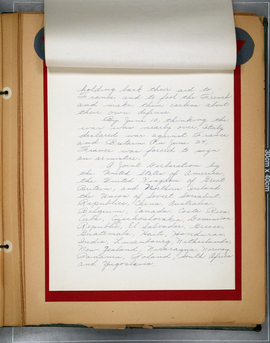 holding back their aid to
France and to fool the French
and make them careless about
their own defense.
By June 10, thinking the
war was nearly over, Italy
declared war against France
and Britain. On June 24,
France was forced to sign
an armistice.
A Joint Declaration by
the United States of America,
the United Kingdom of Great
Britain, and Northern Ireland
the Union of Soviet Socialist
Republics, China, Australia
Belgium, Canada, Costa Rica
Cuba, Czechoslovakia, Dominican
Republic, El Salvador, Greece
Guatemala, Haiti, Honduras
India, Luxembourg, Netherlands,
New Zealand, Nicaragua, Norway,
Panama, Poland, South Africa
and Yugoslavia
30cm x 40cm